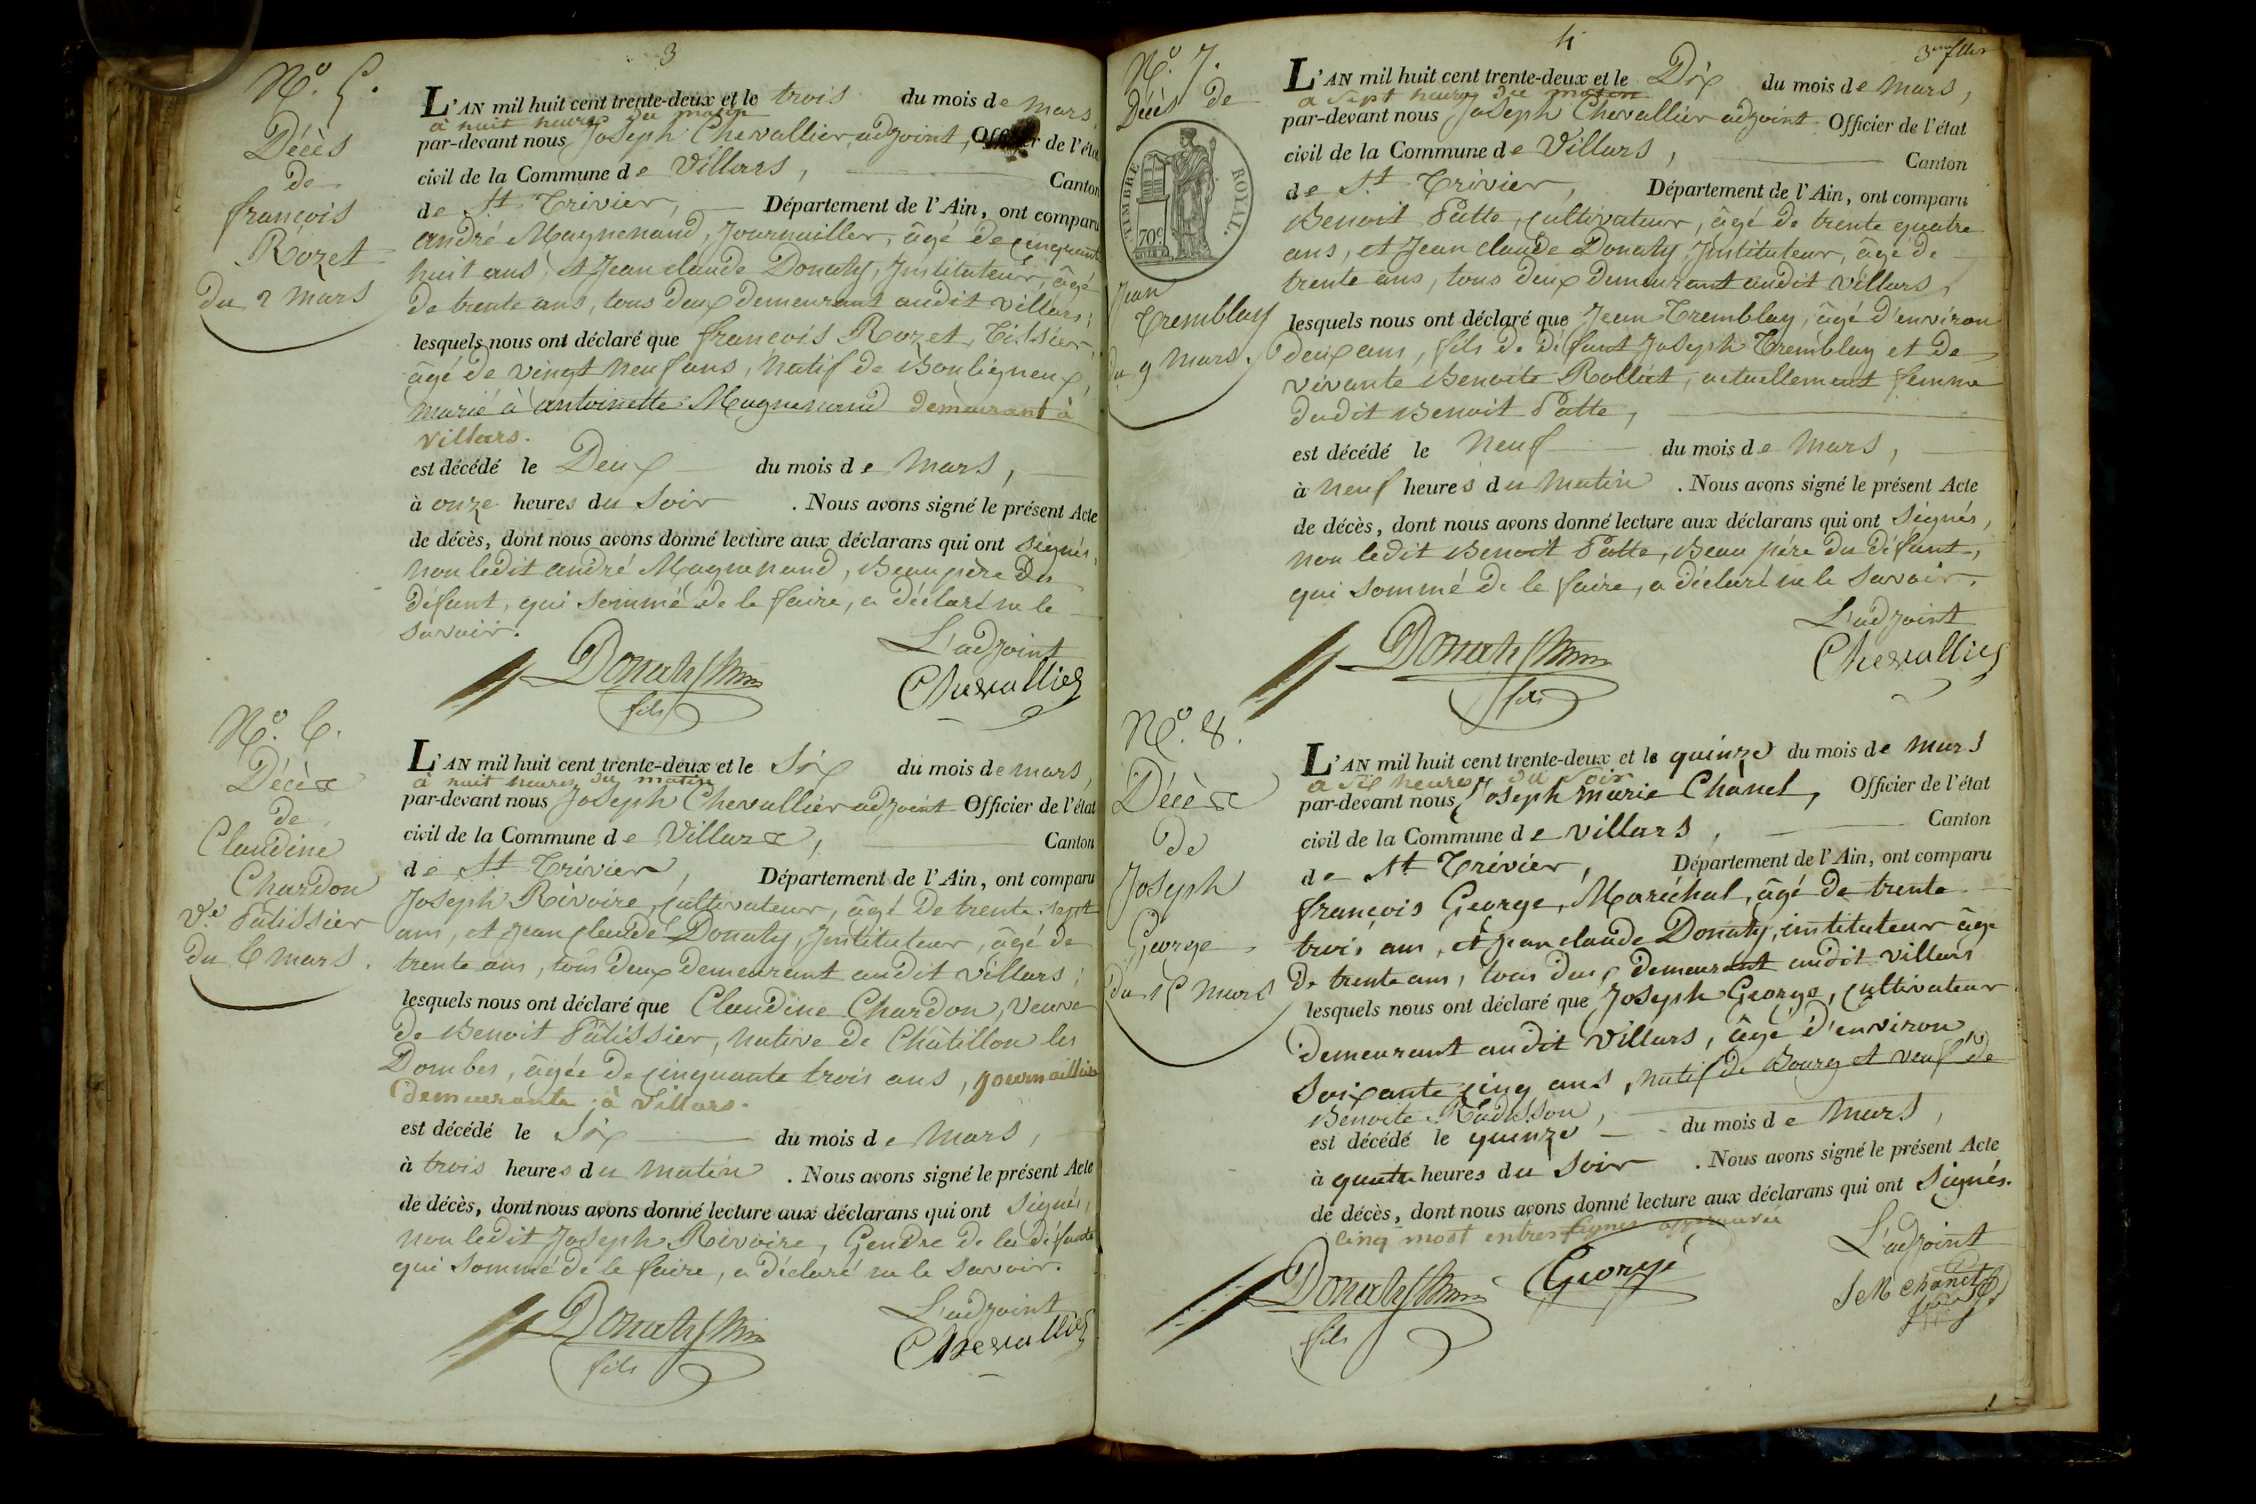 3
N.° 5.
Décès
de
françois
Rozet
du 2 Mars
L'AN mil huit cent trente-deux et le trois du mois de Mars,
à huit heures du matin
par-devant nous Joseph Chevallier, adjoint, Officier de l'état
civil de la Commune de Villars, Canton
de St. Trivier, Département de l'Ain, ont comparu
andré Magnenaud, Journailler, âgé de cinquant
huit ans, et Jean claude Donaty, Instituteur, âgé
de trente ans, tous deux demeurant audit Villars;
lesquels nous ont déclaré que françois Rozet, Tissier,
âgé de vingt neuf ans, Natif de Bouligneux,
marié à antoinette Magnenaud demeurant à
villars.
est décédé le Deux du mois de Mars,
à onze heures du Soir . Nous avons signé le présent Acte
de décès, dont nous avons donné lecture aux déclarans qui ont Signés,
non ledit andré Magnenaud, Beau père du
défunt, qui sommé de le faire, a déclaré ne le
savoir.
L'adjoint
Donaty
fils
Chevallier
N.° 6.
Décès
de
Claudine
Chardon
V.e Pâtissier
du 6 Mars.
L'AN mil huit cent trente-deux et le Six du mois de mars,
à huit heures du matin
par-devant nous Joseph Chevallier adjoint Officier de l'état
civil de la Commune de Villars, Canton
de St. Trivier, Département de l'Ain, ont comparu
Joseph Rivoire, Cultivateur, âgé de trente sept
ans, et Jean Claude Donaty, Instituteur, âgé de
trente ans, tous deux demeurant audit Villars;
lesquels nous ont déclaré que Claudine Chardon, Veuve
de Benoit Pâtissier, native de Châtillon les
Dombes, âgée de cinquante trois ans, journaillière
demeurante à Villars.
est décédé le Six du mois de Mars,
à trois heures du matin . Nous avons signé le présent Acte
de décès, dont nous avons donné lecture aux déclarans qui ont Signés,
non ledit Joseph Rivoire, Gendre de la défunte
qui sommé de le faire, a déclaré ne le savoir.
L'adjoint
Donaty
fils
Chevallier
4
3me fller
N.° 7.
Décès de
TIMBRE ROYAL.
70c
Jean
Tremblay
du 9 Mars.
L'AN mil huit cent trente-deux et le Dix du mois de Mars,
à sept heures du matin
par-devant nous Joseph Chevallier adjoint Officier de l'état
civil de la Commune de Villars, Canton
de St. Trivier, Département de l'Ain, ont comparu
Benoit Patte, cultivateur, âgé de trente quatre
ans, et Jean claude Donaty, Instituteur, âgé de
trente ans, tous deux demeurant audit Villars,
lesquels nous ont déclaré que Jean Tremblay, âgé d'environ
deux ans, fils de défunt Joseph Tremblay et de
vivante Benoite Rolliat, actuellement femme
dudit Benoit Patte,
est décédé le Neuf du mois de Mars,
à Neuf heures du Matin . Nous avons signé le présent Acte
de décès, dont nous avons donné lecture aux déclarans qui ont Signés,
non ledit Benoit Patte, Beau père du défunt,
qui sommé de le faire, a déclaré ne le savoir.
L'adjoint
Donaty
fils
Chevallier
N.° 8.
Décès
de
Joseph
George
du 15 Mars
L'AN mil huit cent trente-deux et le quinze du mois de mars
à six heures du soir
par-devant nous Joseph marie Chanel, Officier de l'état
civil de la Commune de villars, Canton
de St Trivier, Département de l'Ain, ont comparu
françois George, Maréchal, âgé de trente
trois ans, et Jean claude Donaty, instituteur âgé
de trente ans, tous deux demeurant audit villars
lesquels nous ont déclaré que Joseph George, Cultivateur
demeurant audit Villars, âgé d'environ
Soixante cinq ans, natif de Bourg et veuf de
Benoite Radisson,
est décédé le quinze du mois de Mars,
à quatre heures du Soir . Nous avons signé le présent Acte
de décès, dont nous avons donné lecture aux déclarans qui ont Signés.
Cinq most entreslignes approuvée
L'adjoint
Donaty
fils
George
J M Chanel